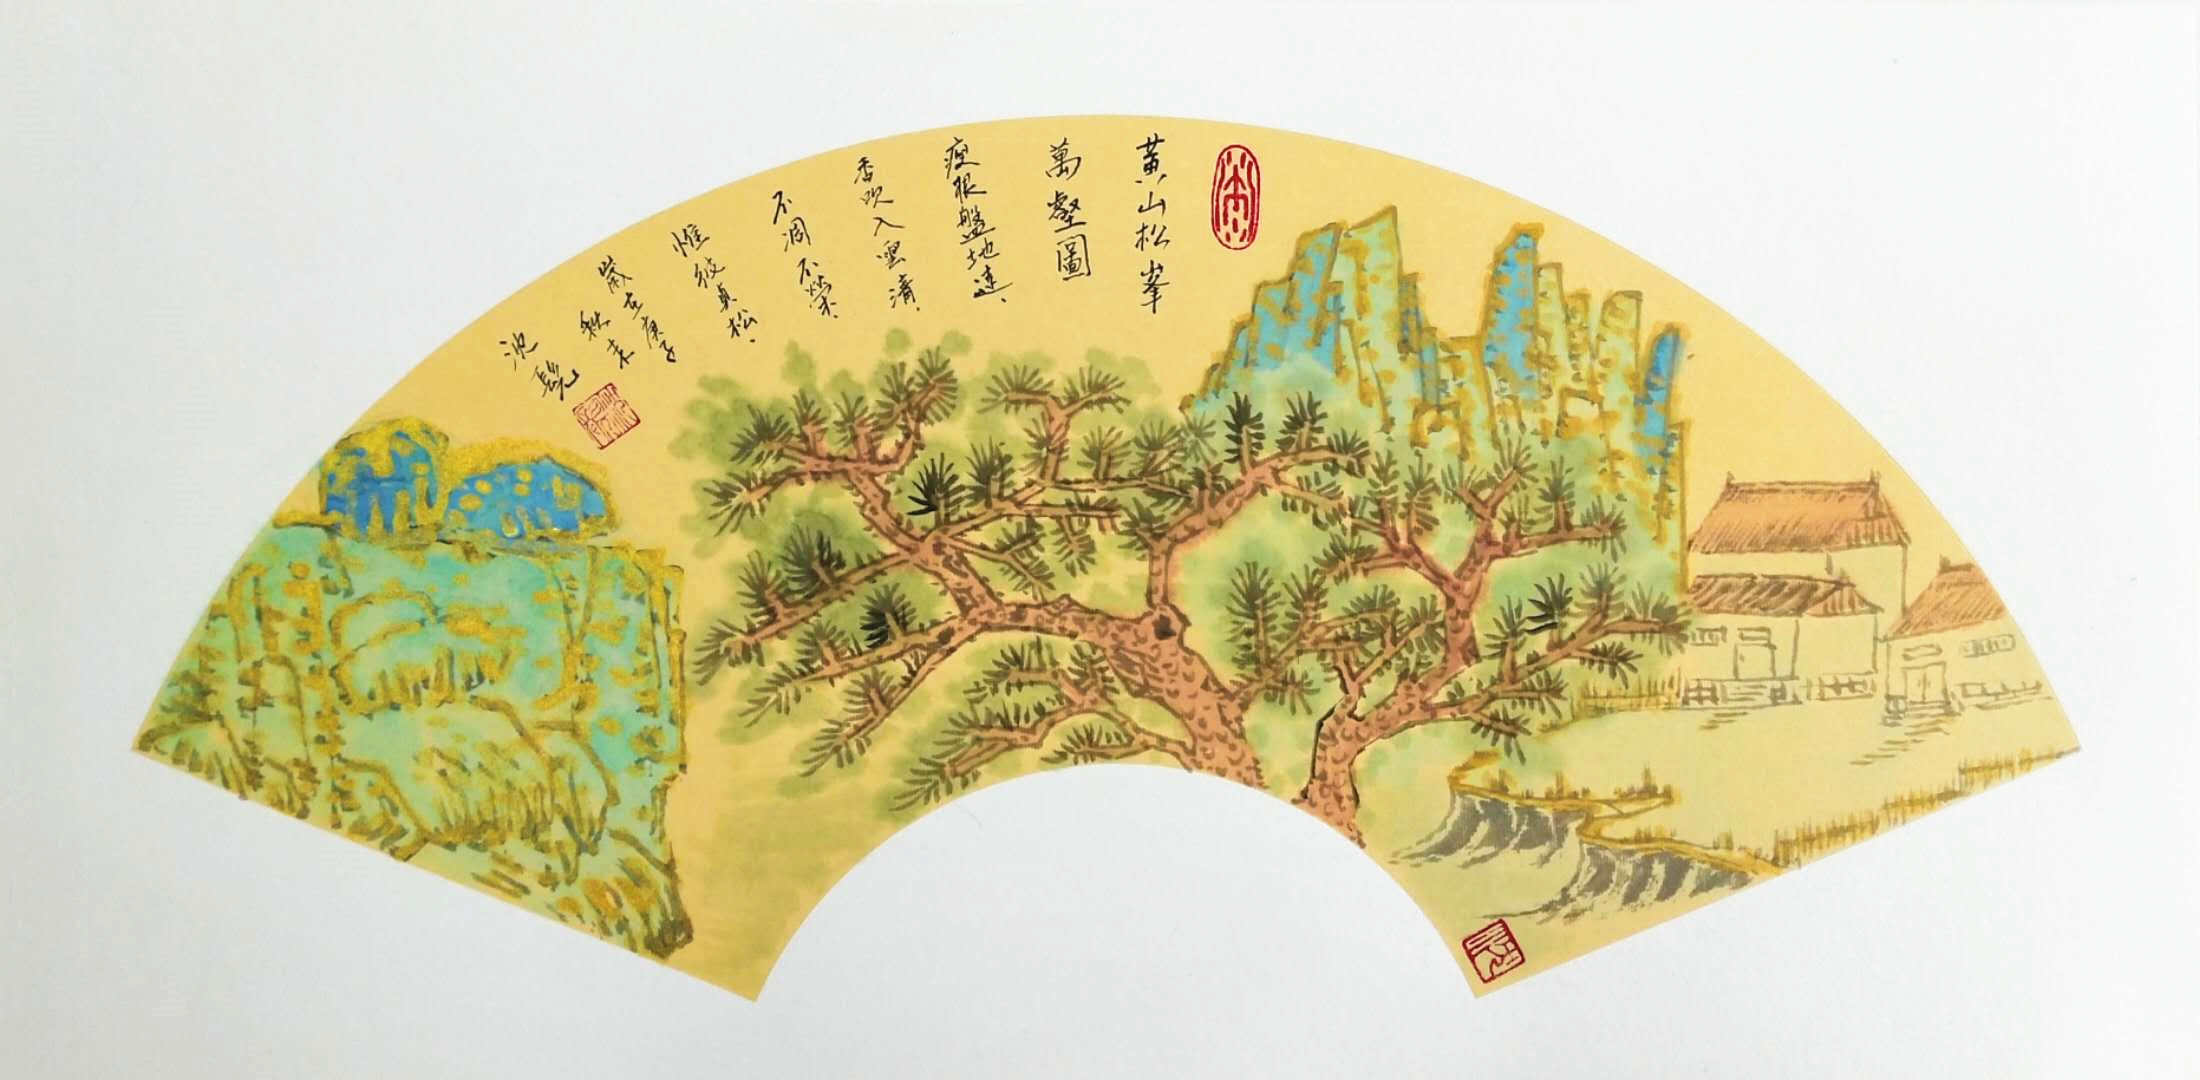 黃山松峯
萬壑圖
瘦根盤地遠、
香吹入雲清、
不凋不榮、
惟彼貞松、
歲在庚子
秋末
沈